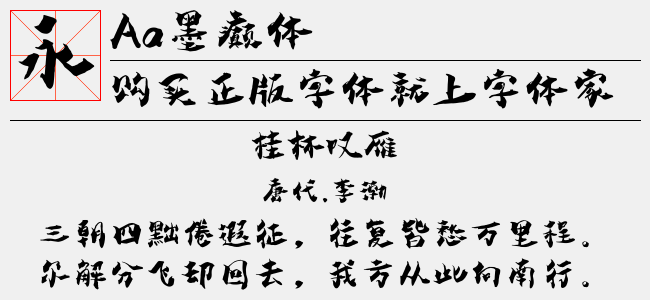 永
Aa墨癫体
购买正版字体就上字体家
桂林叹雁
唐代.李渤
三朝四黜倦遐征，往复皆愁万里程。
尔解分飞却回去，我方从此向南行。